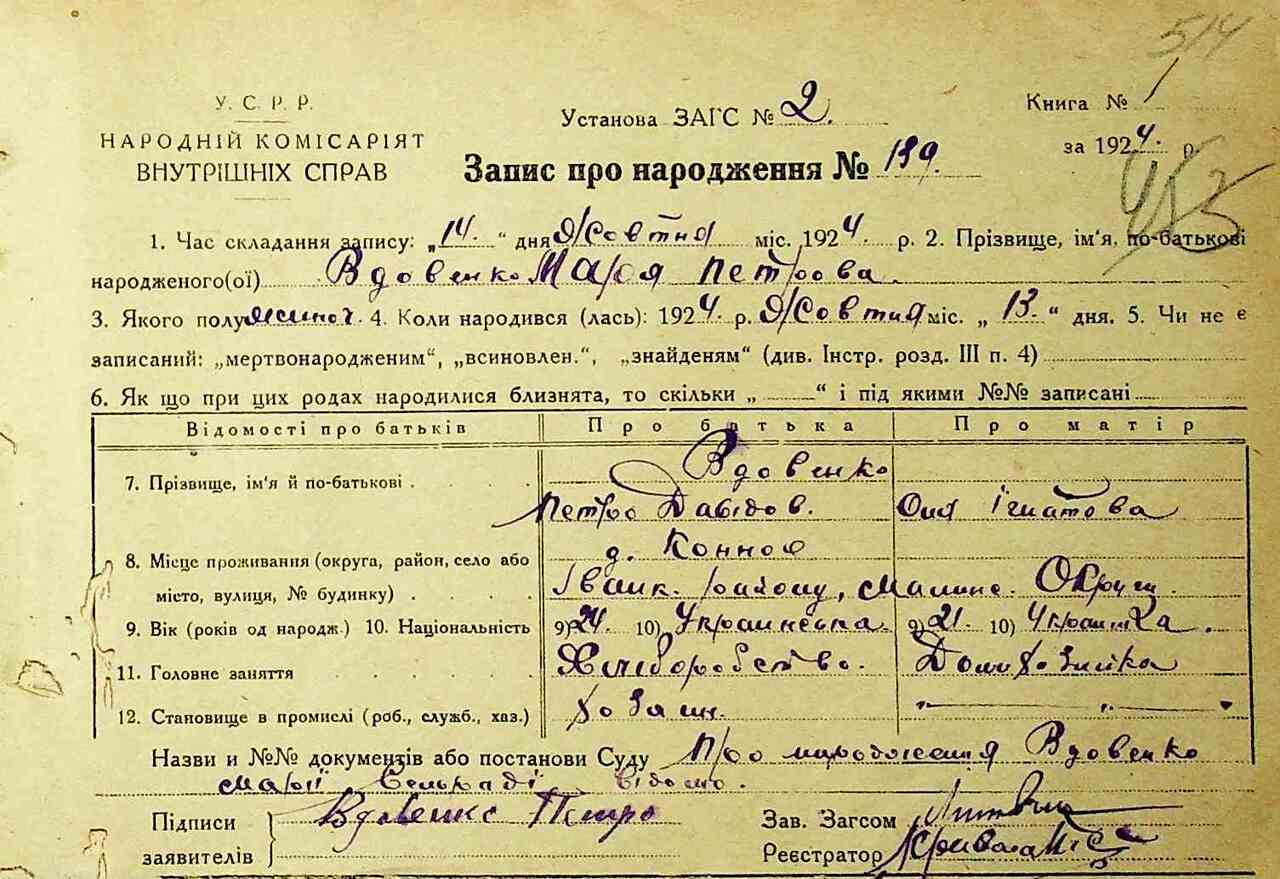 514
У. С. Р. Р.
НАРОДНІЙ КОМІСАРІЯТ
ВНУТРІШНІХ СПРАВ
Установа ЗАГС № 2.
Запис про народження № 139.
Книга № 1
за 1924. р.
453
1. Час складання запису: „14.“ дня Жовтня міс. 1924. р. 2. Прізвище, ім'я, по-батькові
народженого(ої) Вдовенко Марія Петрова.
3. Якого полу жіноч. 4. Коли народився (лась): 1924 р. Жовтня міс. „13.“ дня. 5. Чи не є
записаний: „мертвонародженим“, „всиновлен.“, „знайденям“ (див. Інстр. розд. III п. 4)
6. Як що при цих родах народилися близнята, то скільки „ “ і під якими №№ записані
Відомості про батьків Про батька Про матір
Вдовенко
7. Прізвище, ім'я й по-батькові . . . . Петро Давідов. Ігнатова
8. Місце проживання (округа, район, село або
місто, вулиця, № будинку) . . . . району, Округи.
9. Вік (років од народж.) 10. Національність 9) 24. 10) Украинська. 9) 21. 10) Украинка.
11. Головне заняття . . . . . . Хліборобство. Домохозяйка
12. Становище в промислі (роб., служб., хаз.) хозяин. „
Назви и №№ документів або постанови Суду Про народження Вдовенко
Марії Сельраді відомо.
Підписи Вдовенко Петро
заявителів
Зав. Загсом
Реєстратор